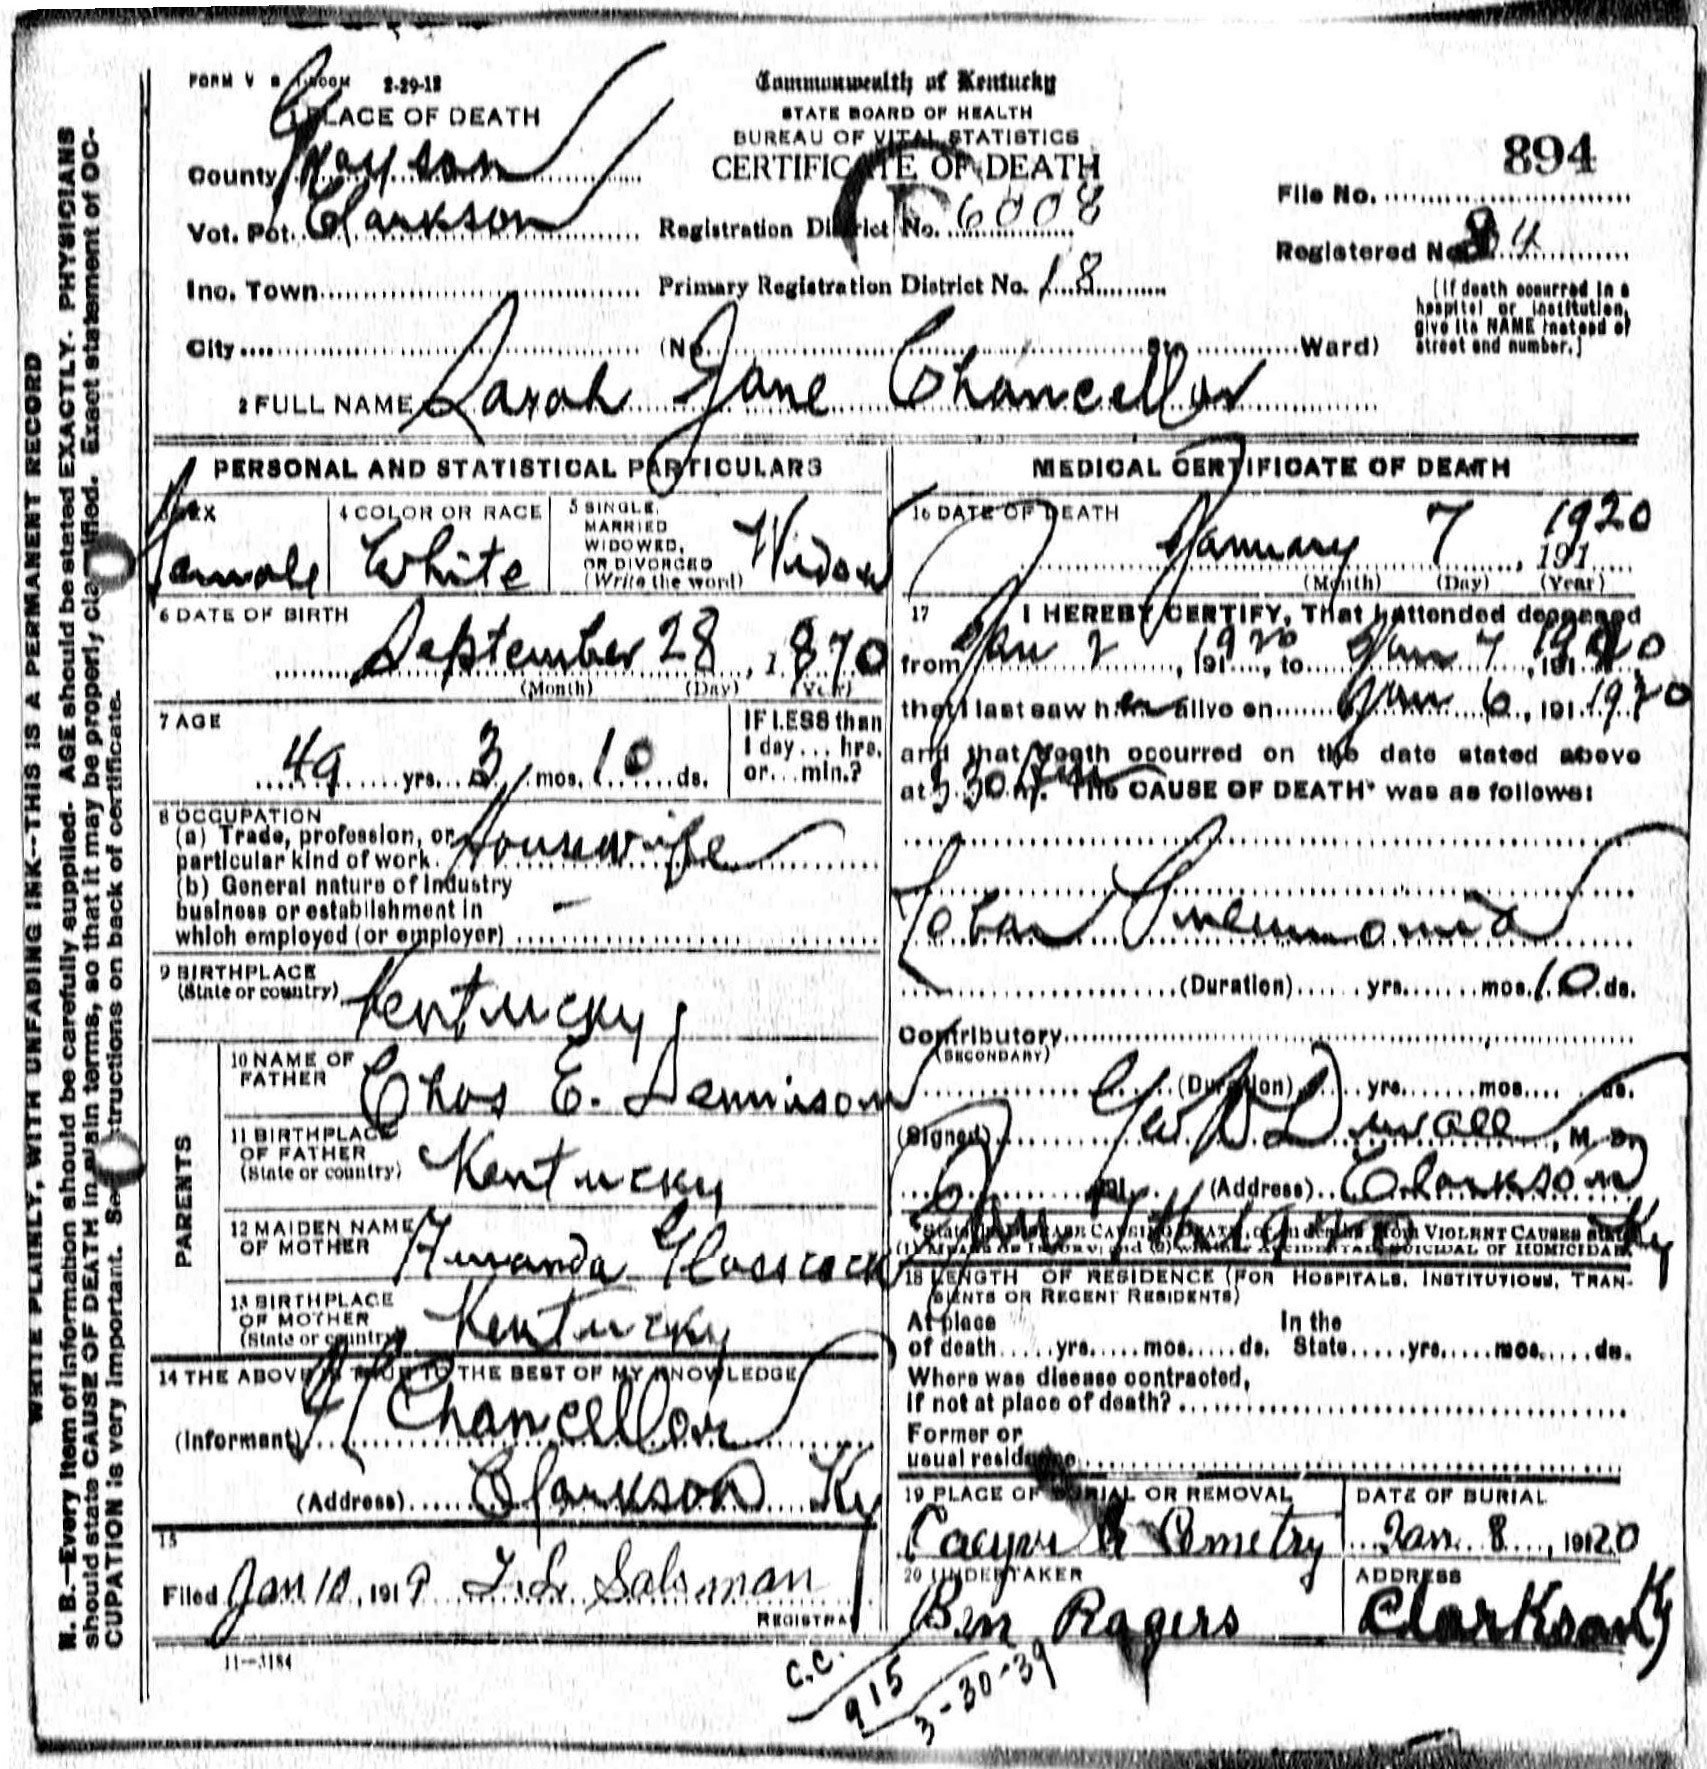 WRITE PLAINLY, WITH UNFADING INK--THIS IS A PERMANENT RECORD
N. B.—Every item of information should be carefully supplied. AGE should be stated EXACTLY. PHYSICIANS
should state CAUSE OF DEATH in plain terms, so that it may be properly classified. Exact statement of OC-
CUPATION is very important. See instructions on back of certificate.
FORM V S 2-29-12
1 PLACE OF DEATH
County Grayson
Vot. Pct. Clarkson
Inc. Town
City
Commonwealth of Kentucky
STATE BOARD OF HEALTH
BUREAU OF VITAL STATISTICS
CERTIFICATE OF DEATH
Registration District No. 6008
Primary Registration District No. 18
(No. Ward)
894
File No.
Registered No. 4
(If death occurred in a
hospital or institution,
give its NAME instead of
street and number.)
2 FULL NAME Sarah Jane Chancellor
PERSONAL AND STATISTICAL PARTICULARS
3 SEX
Female
4 COLOR OR RACE
White
5 SINGLE,
MARRIED
WIDOWED,
OR DIVORCED
(Write the word)
Widow
6 DATE OF BIRTH
September 28, 1870
(Month) (Day) (Year)
7 AGE
49 yrs. 3 mos. 10 ds.
IF LESS than
1 day... hrs.
or... min.?
8 OCCUPATION
(a) Trade, profession, or
particular kind of work. Housewife
(b) General nature of industry
business or establishment in –
which employed (or employer)
9 BIRTHPLACE
(State or country) Kentucky
PARENTS
10 NAME OF
FATHER Chas E. Dennison
11 BIRTHPLACE
OF FATHER
(State or country) Kentucky
12 MAIDEN NAME
OF MOTHER Amanda Glasscock
13 BIRTHPLACE
OF MOTHER
(State or country) Kentucky
14 THE ABOVE IS TRUE TO THE BEST OF MY KNOWLEDGE
(Informant) Chancellor
(Address) Clarkson Ky
15
Filed Jan 10, 1919 T. L. Salsman
REGISTRAR
11—3184
MEDICAL CERTIFICATE OF DEATH
16 DATE OF DEATH
January 7 1920
, 191
(Month) (Day) (Year)
17 I HEREBY CERTIFY, That I attended deceased
from Jan 2, 191 1920, to Jan 7, 191 1920
that I last saw her alive on Jan 6, 191 1920
and that death occurred on the date stated above
at 30 m. The CAUSE OF DEATH* was as follows:
Lobar Pneumonia
(Duration) yrs. mos. 10 ds.
Contributory
(SECONDARY)
(Duration) yrs. mos. ds.
(Signed) Duvall, M. D.
191 (Address) Clarkson
Ky
*State the DISEASE CAUSING DEATH, or in deaths from VIOLENT CAUSES state
(1) MEANS OF INJURY; and (2) whether ACCIDENTAL, SUICIDAL OF HOMICIDAL.
18 LENGTH OF RESIDENCE (FOR HOSPITALS, INSTITUTIONS, TRAN-
SIENTS OR RECENT RESIDENTS)
At place In the
of death yrs. mos. ds. State yrs. mos. ds.
Where was disease contracted,
if not at place of death?
Former or
usual residence
19 PLACE OF BURIAL OR REMOVAL
Cemetry
DATE OF BURIAL
Jan. 8, 19120
20 UNDERTAKER
Ben Rogers
ADDRESS
Clarkson Ky
C.C.
915
3-30-39